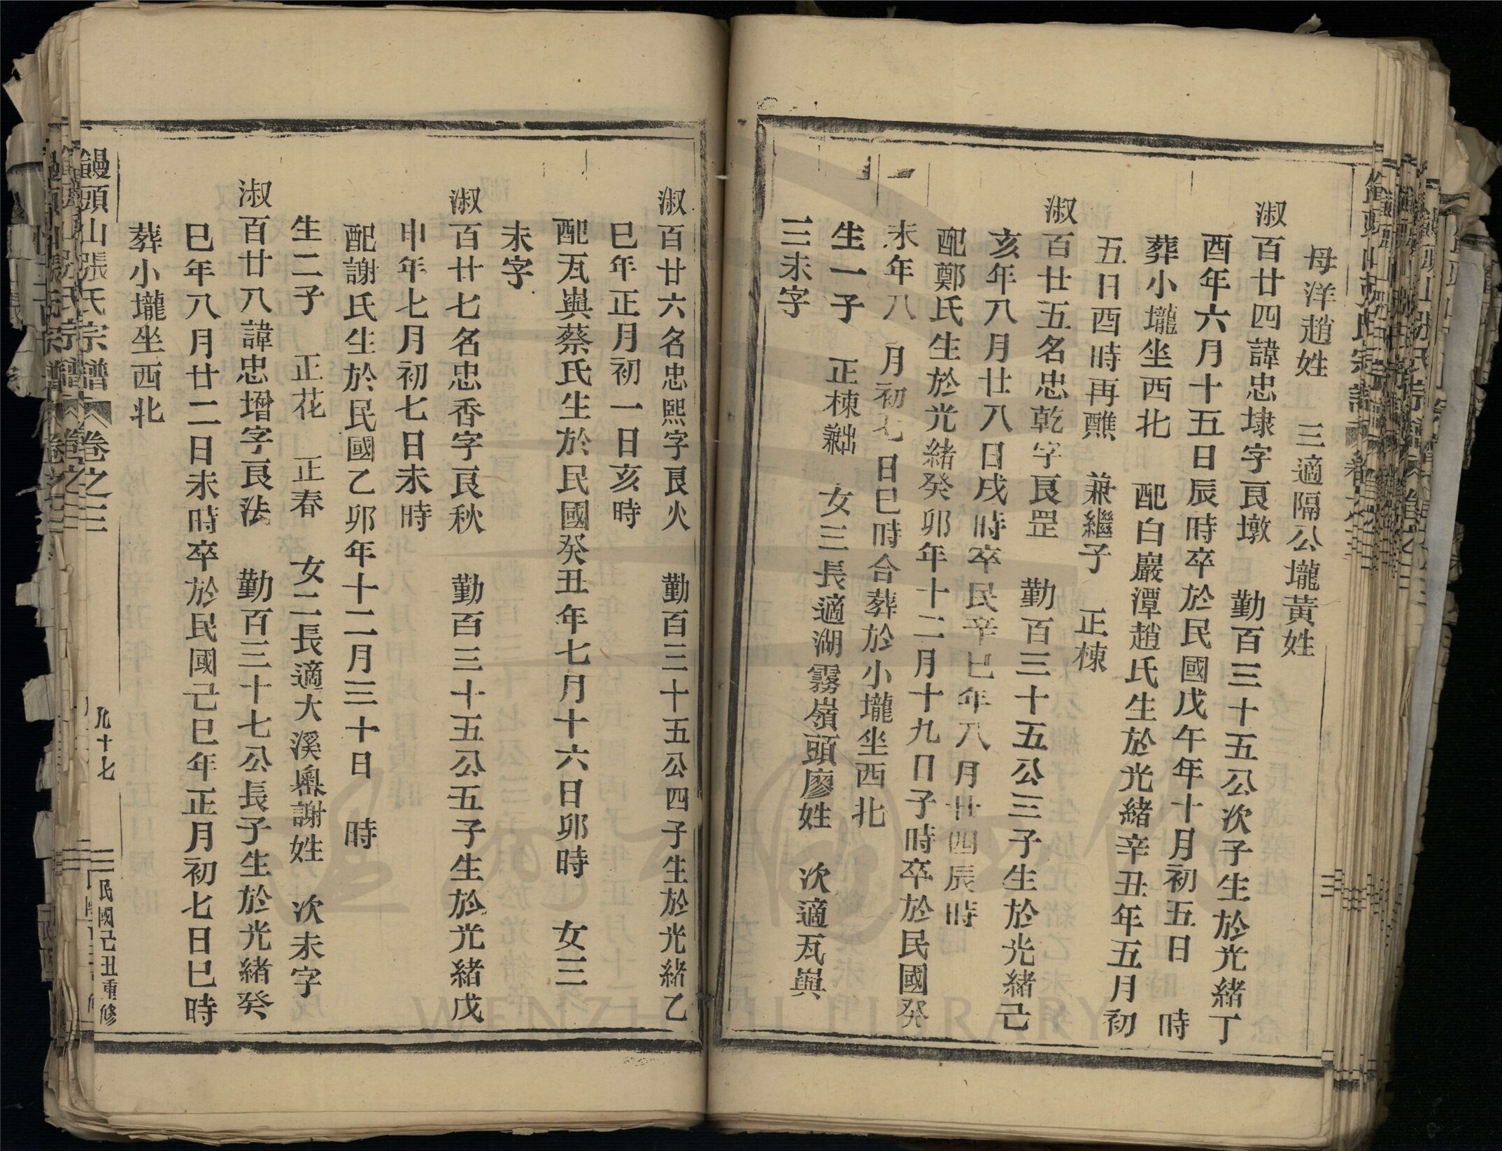 母洋趙姓 三適隔公壠黃姓
淑百廿四諱忠埭字良墩 勤百三十五公次子生於光緒丁
酉年六月十五日辰時卒於民國戊午年十月初五日 時
葬小壠坐西北 配白巖潭趙氏生於光緒辛丑年五月初
五日酉時再醮 兼繼子 正棟
淑百廿五名忠乾字良罡 勤百三十五公三子生於光緒己
亥年八月廿八日戌時卒民辛巳年八月廿四辰時
配鄭氏生於光緒癸卯年十二月十九日子時卒於民國癸
未年八月初七日巳時合葬於小壠坐西北
生一子 正棟 女三長適湖霧嶺頭廖姓 次適瓦與
三未字
淑百廿六名忠熙字良火 勤百三十五公四子生於光緒乙
巳年正月初一日亥時
配瓦與蔡氏生於民國癸丑年七月十六日卯時 女三
未字
淑百廿七名忠香字良秋 勤百三十五公五子生於光緒戊
申年七月初七日未時
配謝氏生於民國乙卯年十二月三十日 時
生二子 正花 正春 女二長適大溪謝姓 次未字
淑百廿八諱忠增字良法 勤百三十七公長子生於光緒癸
巳年八月廿二日未時卒於民國己巳年正月初七日巳時
葬小壠坐西北
饅頭山張氏宗譜 卷之三 九十七 民國己丑重修
WENZHOU LIBRARY